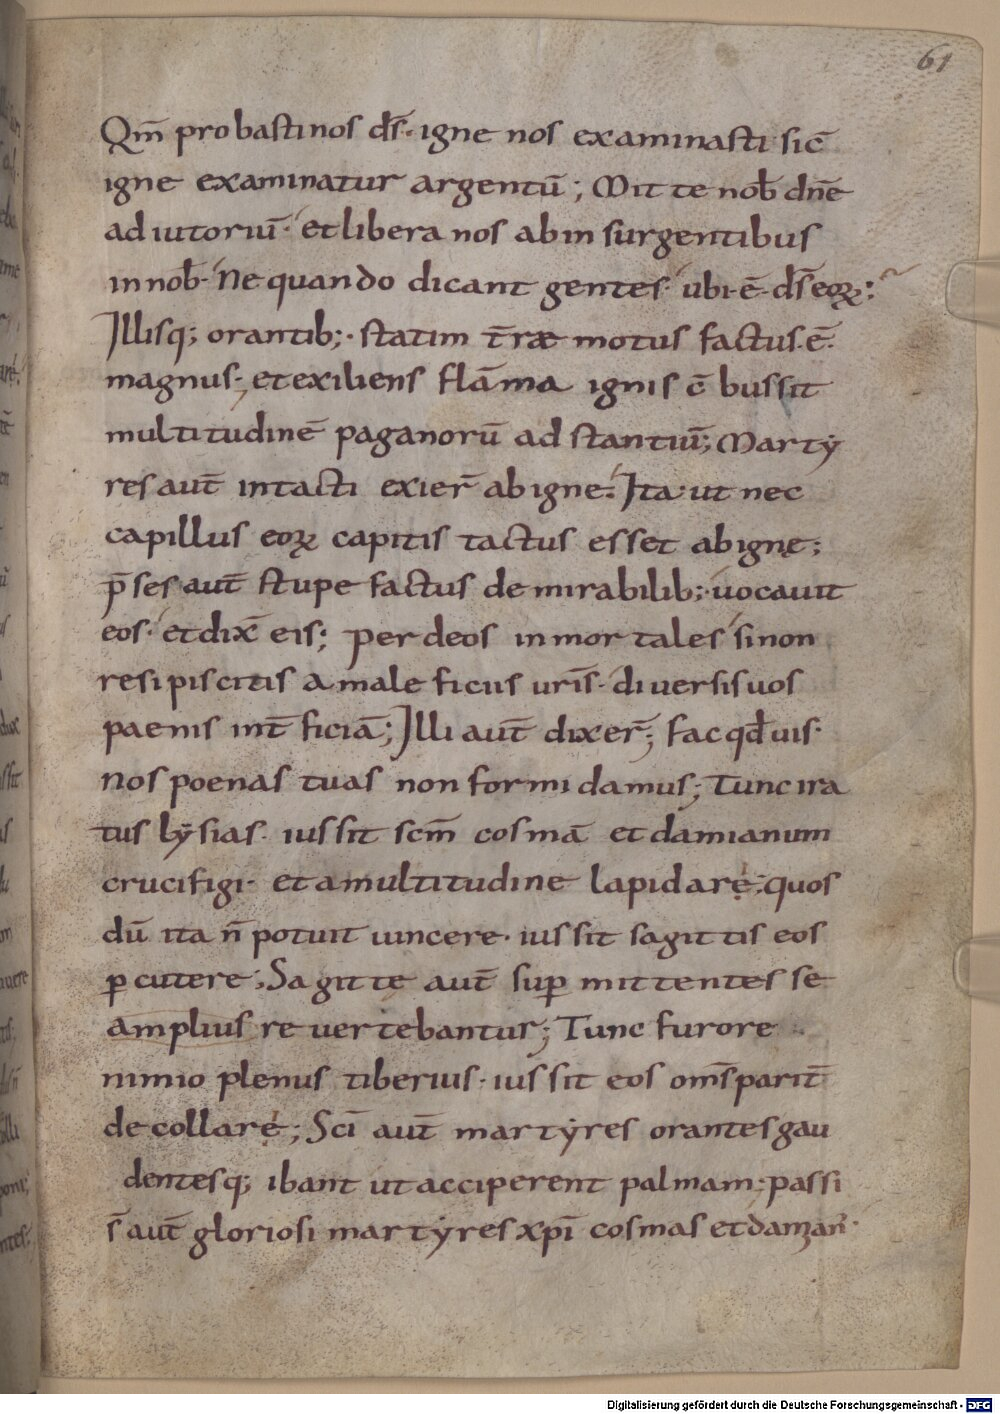 61
Qm̄ probasti nos ds̄· igne nos examinasti sic̄
igne examinatur argentū; Mitte nob̄ dn̄e
adiutoriū· et libera nos ab insurgentibus
in nob̄· Ne quando dicant gentes ubi ē· ds̄ eoꝝ;
Illisq; orantib;· statim t̄rae motus factus ē·
magnus· et exiliens flāma ignis c̄bussit
multitudinē paganorū adstantiū; Marty
res aut̄ intacti exier̄ ab igne· Ita ut nec
capillus eoꝝ capitis tactus esset ab igne;
p̄ses aut̄ stupefactus de mirabilib;· uocauit
eos· et dix̄ eis; per deos inmortales si non
resipiscitis a maleficiis uris̄· diuersis uos
paenis int̄ficiā; Illi aut̄ dixer̄; Fac qd̄ uis·
nos poenas tuas non formidamus; Tunc ira
tus lẏsias· iussit scm̄ cosmā et damianum
crucifigi· et a multitudine lapidarę; quos
dū ita n̄ potuit uincere· iussit sagittis eos
ꝑcutere; Sagitte aut̄ suꝑ mittentes se
amplius reuertebantur; Tunc furore
nimio plenus tiberius· iussit eos om̄s parit̄
decollarę; Sci̅ aut̄ martẏres orantes gau
dentesq; ibant ut acciperent palmam· passi
s̄ aut̄ gloriosi martẏres xp̄i cosmas et damian̄·
Digitalisierung gefördert durch die Deutsche Forschungsgemeinschaft - DFG